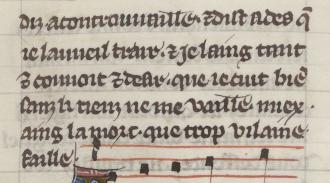 diz acontrouuaille. ⁊ dist ades q̃
ie la uueil trair. ⁊ je laing tant
⁊ couuoit ⁊ desir. que ie cuit bie͂
sanz li riens ne me vaille. miex
aing la mort. que trop vilaine
faille.